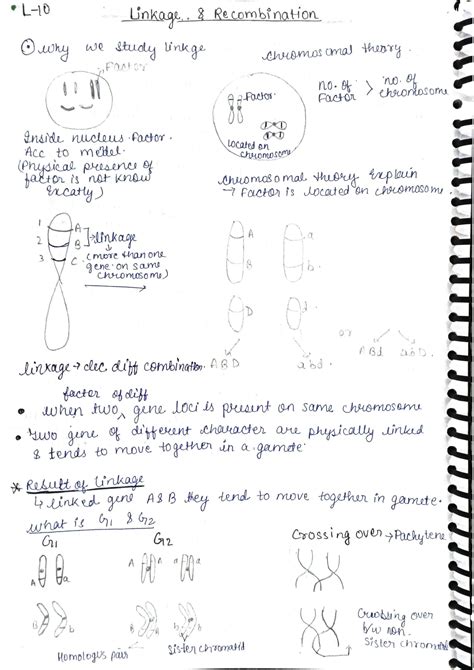 L-10
Linkage & Recombination
why we study linkge
chromosomal theory.
Factor
Factor
no. of Factor > no. of chromosome
located on chromosome
Inside nucleus Factor.
Acc to medel.
(Physical presence of
factor is not know
Excatly)
chromosomal theory Explain
→ Factor is located on chromosome.
1 A
2 B
3 C
linkage
(more than one
gene on same
chromosome)
A a
B b
D d
or
linkage → dec. diff combination. ABD abd ABd abD
factor of diff
• When two gene loci is present on same chromosome
• Two gene of different character are physically linked
& tends to move together in a gamete.
* Result of Linkage
↳ linked gene A&B they tend to move together in gamete.
what is G1 & G2
G1 G2
Crossing over → Pachytene
A a A A a a
B b
Homologus pair
Sister chromatid
Crossing over
b/w non
Sister chromatid